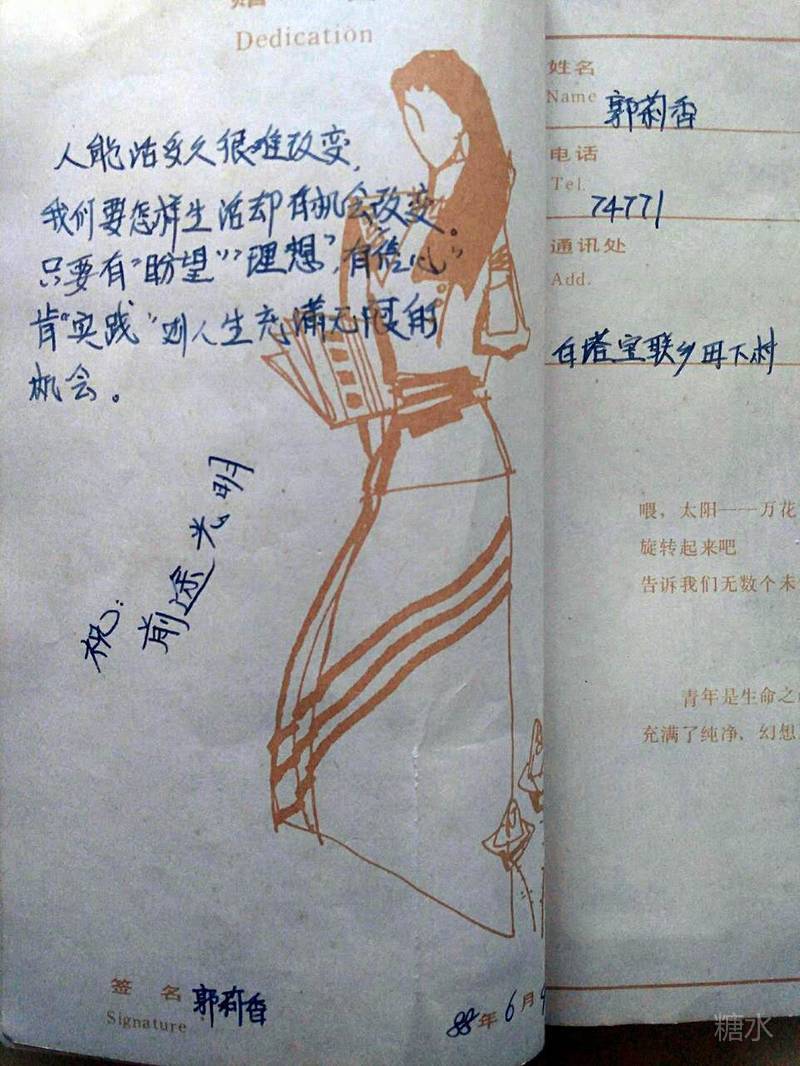 Dedication
人能活多久很难改变，
我们要怎样生活却有机会改变。
只要有“盼望”“理想”，有信心”
肯“实践”则人生充满无限的
机会。
祝：
前途光明
签名 郭莉香
Signature
88年6月
姓名
Name 郭莉香
电话
Tel. 74771
通讯处
Add.
白塔宝联乡田下村
喂，太阳——万花
旋转起来吧
告诉我们无数个未
青年是生命之
充满了纯净，幻想
糖水